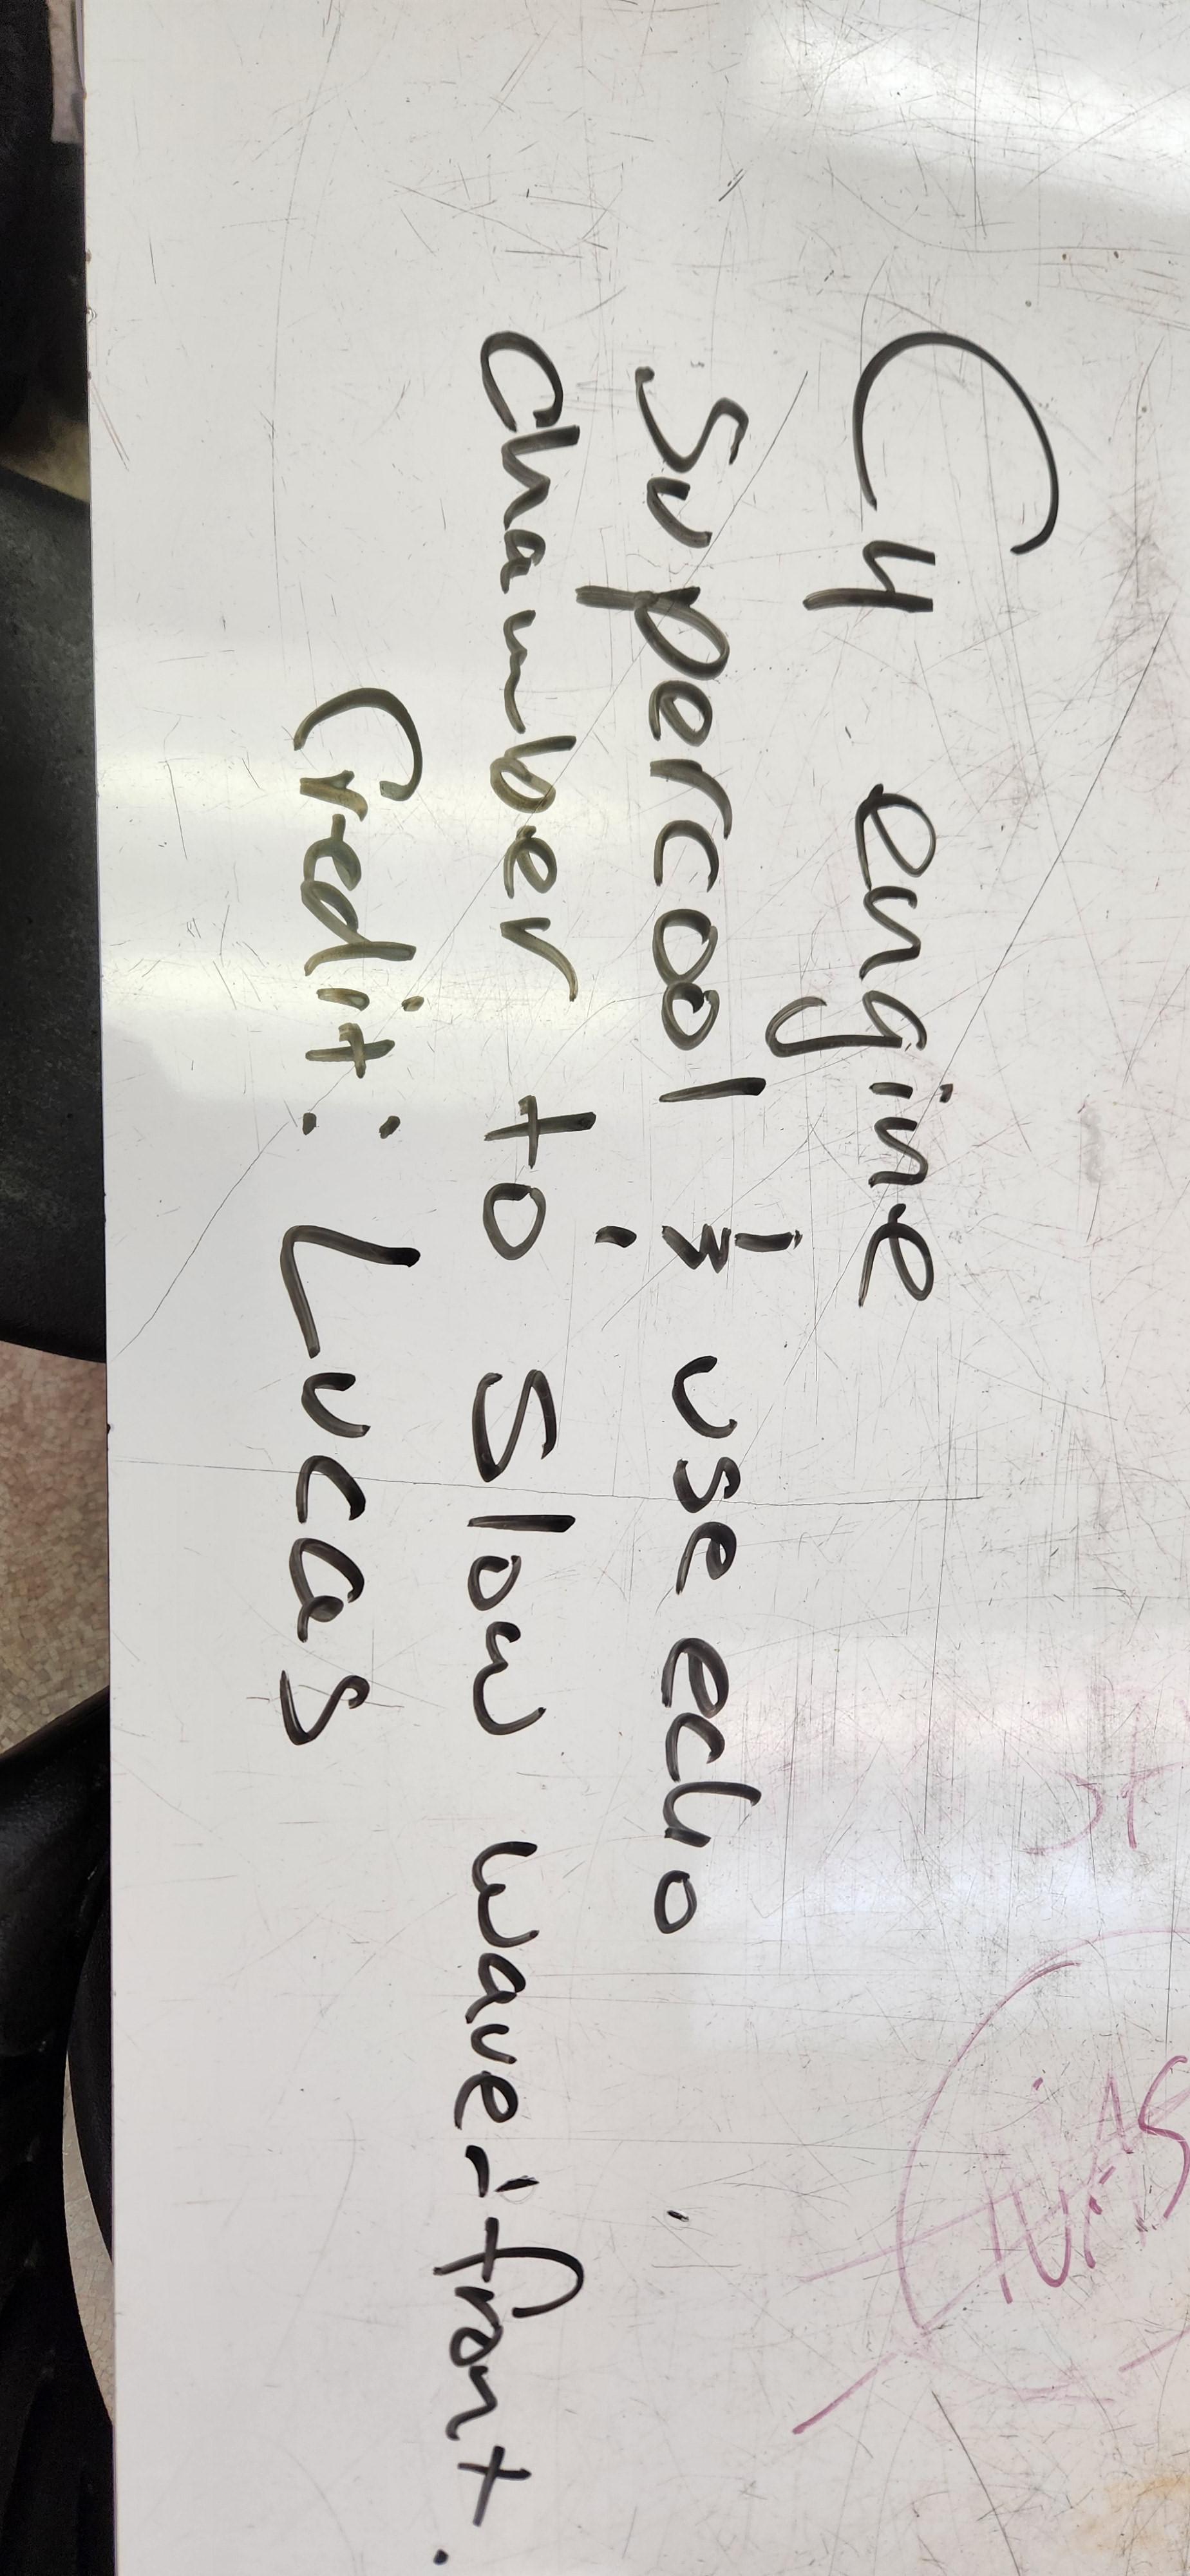 C4 engine
Supercool & use echo
Chamber to Slow wave-front.
Credit: Lucas